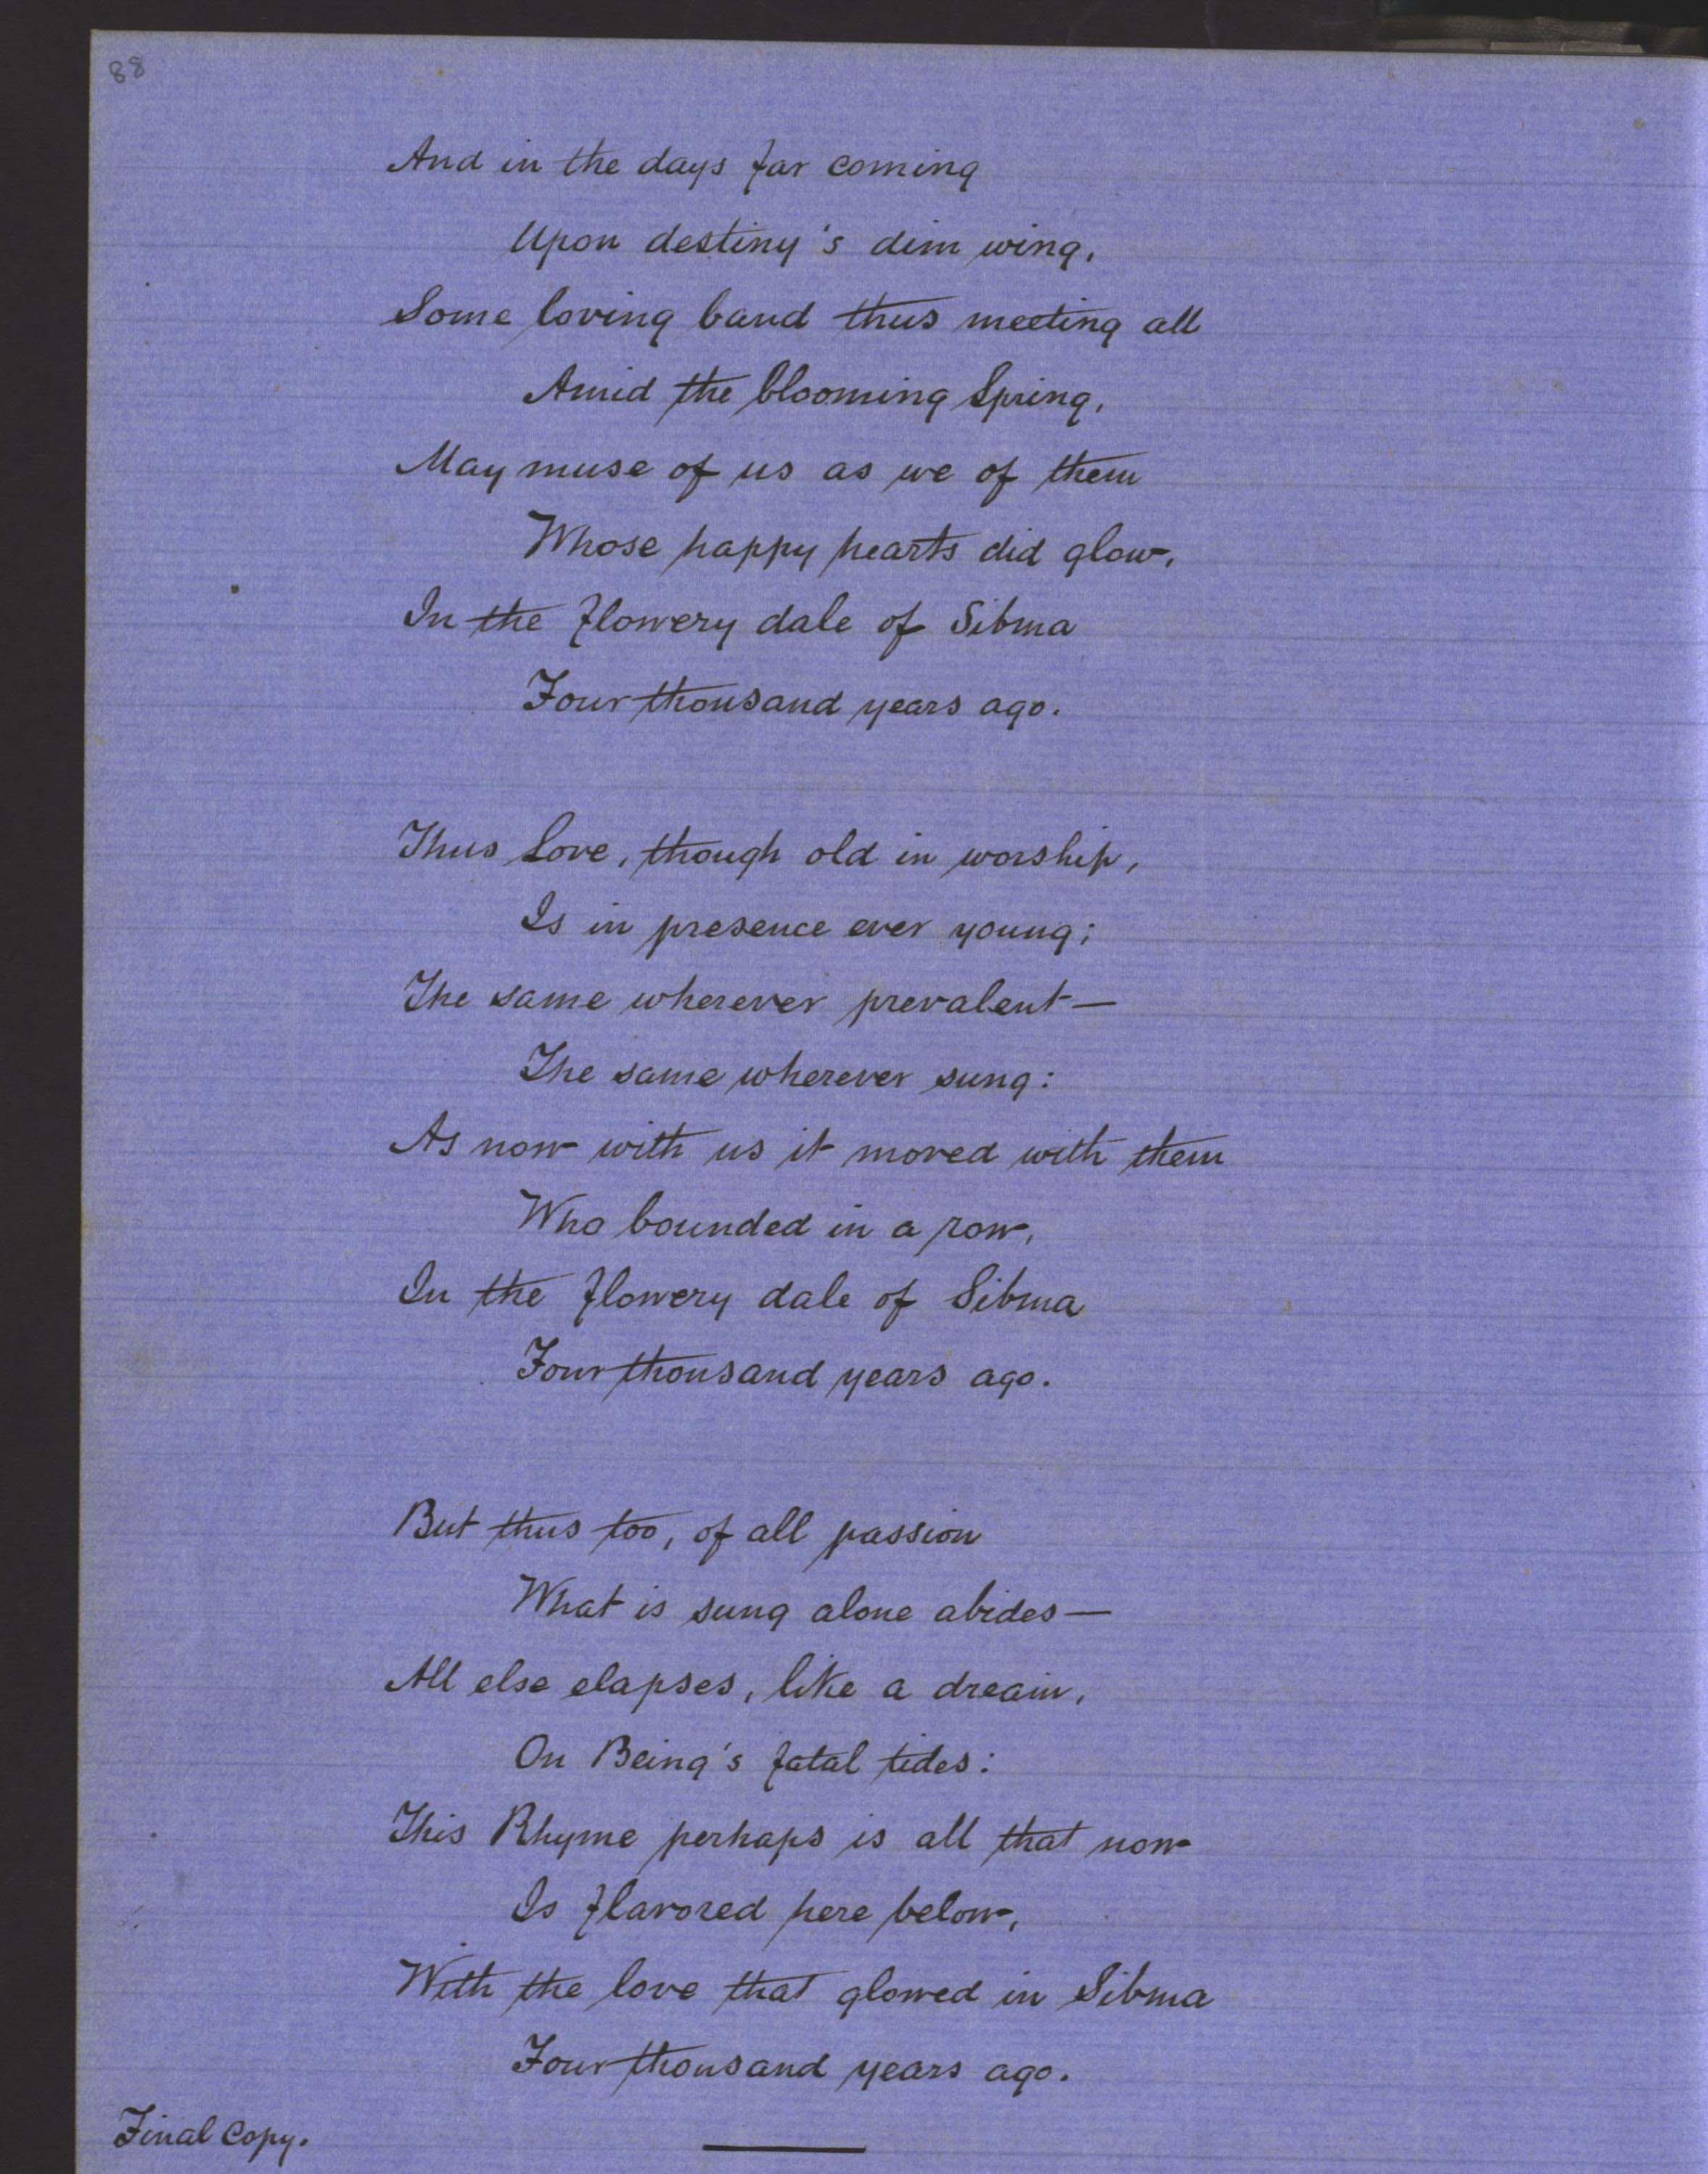 88
And in the days far coming
Upon destiny's dim wing,
Some loving band thus meeting all
Amid the blooming Spring,
May muse of us as we of them
Whose happy hearts did glow,
In the flowery dale of Sibma
Four thousand years ago.
Thus Love, though old in worship,
Is in presence ever young;
The same wherever prevalent—
The same wherever sung:
As now with us it moved with them
Who bounded in a row,
In the flowery dale of Sibma
Four thousand years ago.
But thus too, of all passion
What is sung alone abides—
All else elapses, like a dream,
On Being's fatal tides:
This Rhyme perhaps is all that now
Is flavored here below,
With the love that glowed in Sibma
Four thousand years ago.
Final Copy.